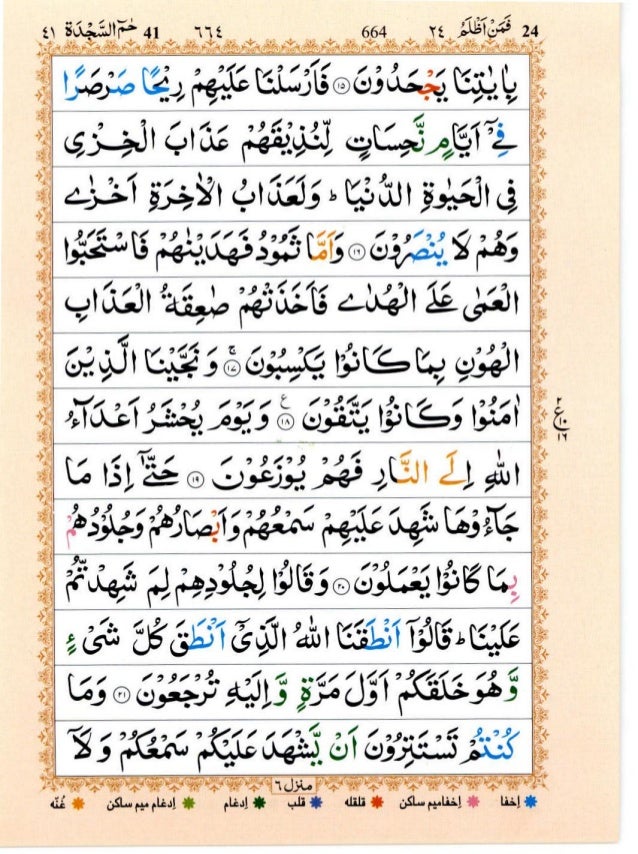 24 فَمَنْ اَظْلَمُ ٢٤ 664 ٦٦٤ حٰمٓ السَّجْدَة 41 ٤١
بِاٰيٰتِنَا يَجْحَدُوْنَ ۝١٥ فَاَرْسَلْنَا عَلَيْهِمْ رِيْحًا صَرْصَرًا
فِيْٓ اَيَّامٍ نَّحِسَاتٍ لِّنُذِيْقَهُمْ عَذَابَ الْخِزْيِ
فِي الْحَيٰوةِ الدُّنْيَا ؕ وَلَعَذَابُ الْاٰخِرَةِ اَخْزٰى
وَهُمْ لَا يُنْصَرُوْنَ ۝١٦ وَاَمَّا ثَمُوْدُ فَهَدَيْنٰهُمْ فَاسْتَحَبُّوا
الْعَمٰى عَلَى الْهُدٰى فَاَخَذَتْهُمْ صٰعِقَةُ الْعَذَابِ
الْهُوْنِ بِمَا كَانُوْا يَكْسِبُوْنَ ۝١٧ۚ وَنَجَّيْنَا الَّذِيْنَ
اٰمَنُوْا وَكَانُوْا يَتَّقُوْنَ ۝١٨ ع وَيَوْمَ يُحْشَرُ اَعْدَآءُ
اللّٰهِ اِلَى النَّارِ فَهُمْ يُوْزَعُوْنَ ۝١٩ حَتّٰٓى اِذَا مَا
جَآءُوْهَا شَهِدَ عَلَيْهِمْ سَمْعُهُمْ وَاَبْصَارُهُمْ وَجُلُوْدُهُمْ
بِمَا كَانُوْا يَعْمَلُوْنَ ۝٢٠ وَقَالُوْا لِجُلُوْدِهِمْ لِمَ شَهِدْتُّمْ
عَلَيْنَا ؕ قَالُوْٓا اَنْطَقَنَا اللّٰهُ الَّذِيْٓ اَنْطَقَ كُلَّ شَيْءٍ
وَّهُوَ خَلَقَكُمْ اَوَّلَ مَرَّةٍ وَّاِلَيْهِ تُرْجَعُوْنَ ۝٢١ وَمَا
كُنْتُمْ تَسْتَتِرُوْنَ اَنْ يَّشْهَدَ عَلَيْكُمْ سَمْعُكُمْ وَلَآ
٢
ع ١٠
١٦
منزل ٦
اِخفا اِخفامیم ساکن قلقله قلب اِدغام اِدغام میم ساکن غُنّه